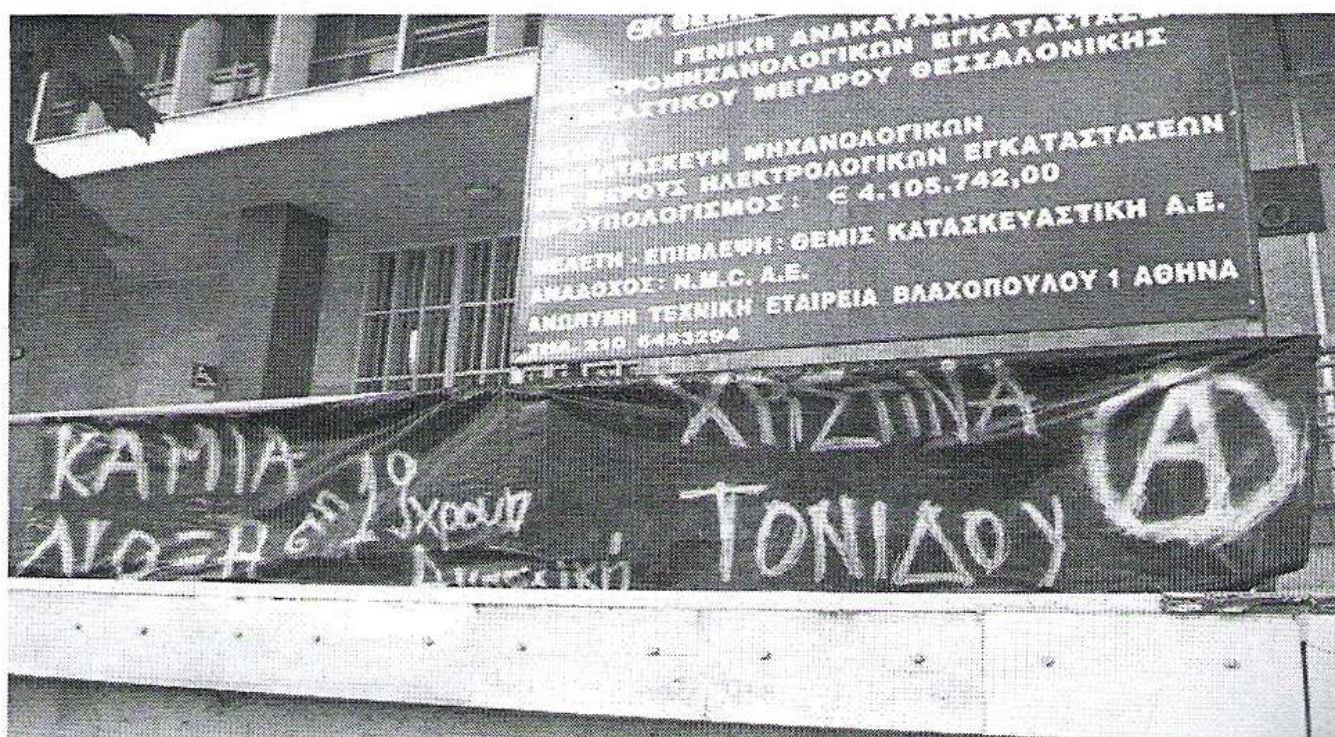 ΓΕΝΙΚΗ
ΕΓΚΑΤΑΣΤΑΣΕΩΝ
ΜΕΓΑΡΟΥ ΘΕΣΣΑΛΟΝΙΚΗΣ
ΜΗΧΑΝΟΛΟΓΙΚΩΝ
ΗΛΕΚΤΡΟΛΟΓΙΚΩΝ ΕΓΚΑΤΑΣΤΑΣΕΩΝ
ΠΡΟΥΠΟΛΟΓΙΣΜΟΣ: € 4.105.742,00
ΜΕΛΕΤΗ - ΕΠΙΒΛΕΨΗ: ΘΕΜΙΣ ΚΑΤΑΣΚΕΥΑΣΤΙΚΗ Α.Ε.
ΑΝΑΔΟΧΟΣ: N.M.C. Α.Ε.
ΑΝΩΝΥΜΗ ΤΕΧΝΙΚΗ ΕΤΑΙΡΕΙΑ ΒΛΑΧΟΠΟΥΛΟΥ 1 ΑΘΗΝΑ
ΤΗΛ. 210 6453294
ΚΑΜΙΑ
ΔΙΩΞΗ στη 19χρονη
ΤΟΝΙΔΟΥ
Α